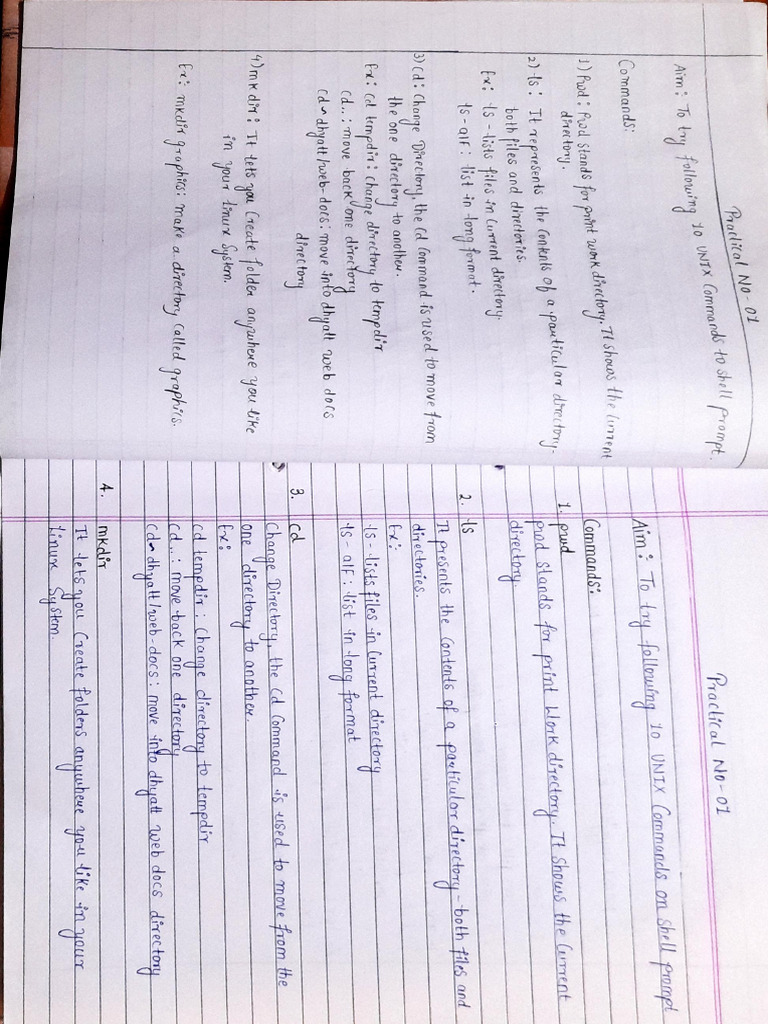 Practical No-01
Aim: To try following 10 UNIX Commands to shell prompt.
Commands:
1) Pwd: Pwd stands for print work directory. It shows the current
directory.
2) ls: It represents the contents of a particular directory-
both files and directories.
Ex: ls - lists files in current directory
ls-alF: list in long format.
3) cd: Change Directory, the cd command is used to move from
the one directory to another.
Ex: cd tempdir: change directory to tempdir
cd..: move back one directory
cd~dhyatt/web-docs: move into dhyatt web docs
directory
4) mkdir: It lets you create folder anywhere you like
in your linux System.
Ex: mkdir graphics: make a directory called graphics.
Practical No-01
Aim: To try following 10 UNIX Commands on shell prompt
Commands:
1. pwd
pwd stands for print work directory. It shows the current
directory
2. ls
It presents the contents of a particular directory-both files and
directories.
Ex:
ls-lists files in current directory
ls-alF: list in long format
3. cd
Change Directory, the cd command is used to move from the
one directory to another.
Ex:
cd tempdir: change directory to tempdir
cd..: move back one directory
cd~dhyatt/web-docs: move into dhyatt web docs directory
4. mkdir
It lets you create folders anywhere you like in your
Linux System.